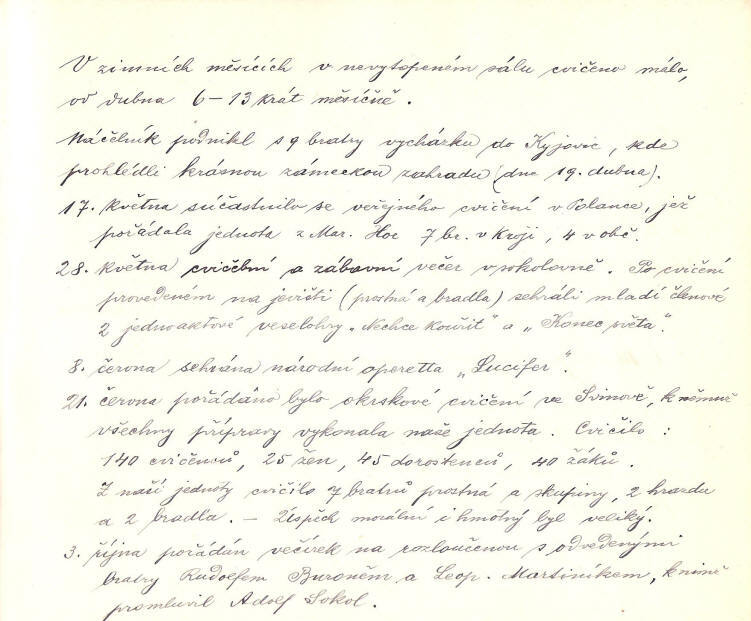 V zimních měsících v nevytopeném sálu cvičeno málo,
od dubna 6–13 krát měsíčně.
Náčelník podnikl s 9 bratry vycházku do Kyjovic, kde
prohlédli krásnou zámeckou zahradu (dne 19. dubna).
17. května súčastnilo se veřejného cvičení v Polance, jež
pořádala jednota z Mar. Hor 7 br. v kroji, 4 v obč.
28. května cvičební a zábavní večer v sokolovně. Po cvičení
provedeném na jevišti (prostná a bradla) sehráli mladí členové
2 jednoaktové veselohry „Nechce kouřit" a „Konec světa".
8. června sehrána národní operetta „Lucifer".
21. června pořádáno bylo okrskové cvičení ve Svinově, k němuž
všechny přípravy vykonala naše jednota. Cvičilo :
140 cvičenců, 25 žen, 45 dorostenců, 40 žáků.
Z naší jednoty cvičilo 7 bratrů prostná a skupiny, 2 hrazdu
a 2 bradla. – Úspěch morální i hmotný byl veliký.
3. října pořádán večírek na rozloučenou s odvedenými
bratry Rudolfem Buroněm a Leop. Martiníkem, k nimž
promluvil Adolf Sokol.